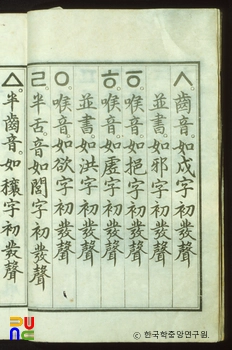 ㅅ。齒音。如戌字初發聲
並書。如邪字初發聲
ㆆ。喉音。如挹字初發聲
ㅎ。喉音。如虛字初發聲
並書。如洪字初發聲
ㅇ。喉音。如欲字初發聲
ㄹ。半舌音。如閭字初發聲
ㅿ。半齒音。如穰字初發聲
ⓒ 한국학중앙연구원